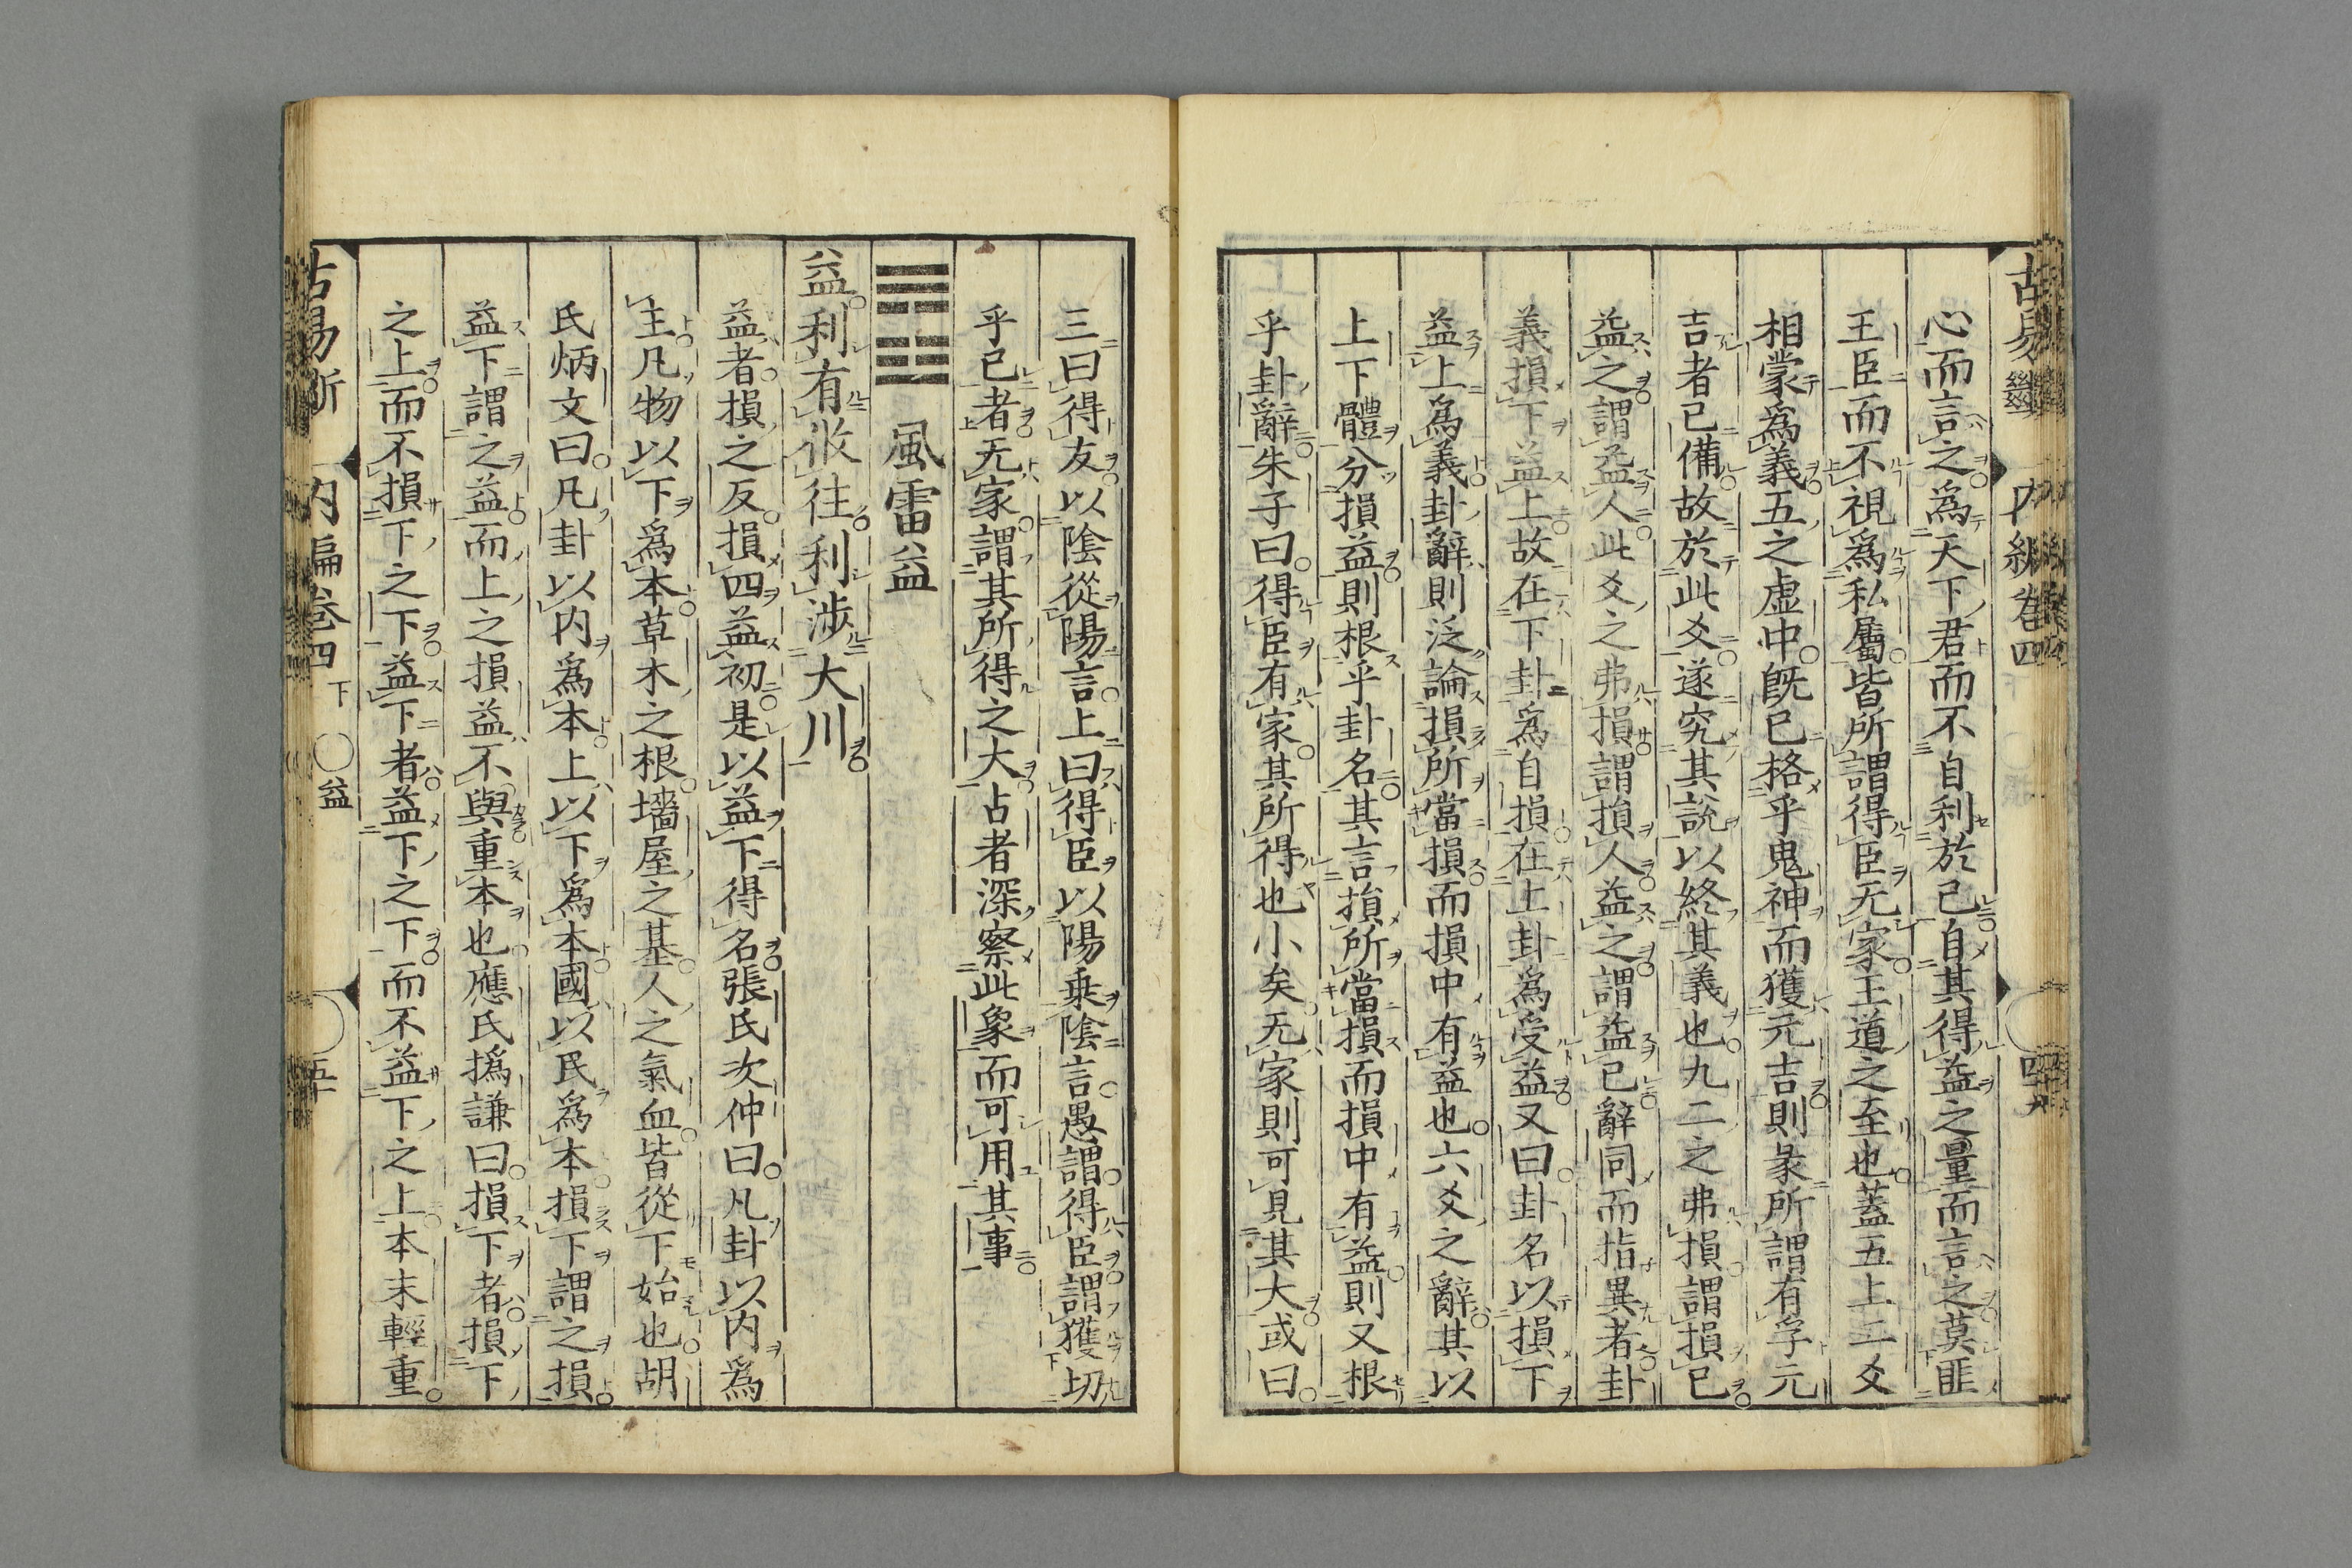 心而言之爲天下君而不自利於己自其得益之量而言之莫匪
王臣而不視爲私屬皆所謂得臣无家王道之至也蓋五上二爻
相蒙爲義五之虛中既已格乎鬼神而獲元吉則彖所謂有孚元
吉者已備故於此爻遂究其說以終其義也九二之弗損謂損己
益之謂益人此爻之弗損謂損人益之謂益己辭同而指異者卦
義損下益上故在下卦爲自損在上卦爲受益又曰卦名以損下
益上爲義卦辭則泛論損所當損而損中有益也六爻之辭其以
上下體分損益則根乎卦名其言損所當損而損中有益則又根
乎卦辭朱子曰得臣有家其所得也小矣无家則可見其大或曰
三曰得友以陰從陽言上曰得臣以陽乘陰言愚謂得臣謂獲切
乎己者无家謂其所得之大占者深察此象而可用其事
風雷益
益利有攸往利涉大川
益者損之反損四益初是以益下得名張氏次仲曰凡卦以内爲
主凡物以下爲本草木之根墻屋之基人之氣血皆從下始也胡
氏炳文曰凡卦以内爲本上以下爲本國以民爲本損下謂之損
益下謂之益而上之損益不與重本也應氏撝謙曰損下者損下
之上而不損下之下益下者益下之下而不益下之上本末輕重
古易斷 内編卷四 下 益 五十